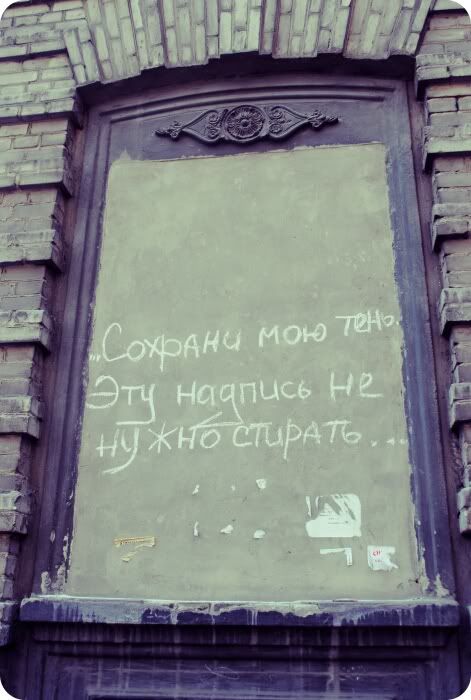 ..Сохрани мою тень.
Эту надпись не
нужно стирать...